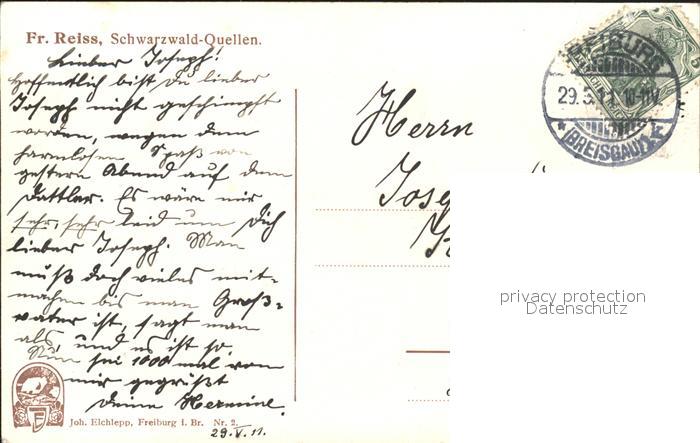 Fr. Reiss, Schwarzwald-Quellen.
Lieber Joseph!
Hoffentlich bist Du lieber
Joseph nicht geschimpft
worden, wegen dem
harmlosen Spaß von
gestern Abend auf dem
Dattler. Es wäre mir
sehr, sehr leid um Dich
lieber Joseph. Man
muß doch vieles mit-
machen bis man Groß-
vater ist, sagt man
als, und es ist so.
Nun sei 1000 mal von
mir gegrüßt
Deine Hermine.
Joh. Elchlepp, Freiburg i. Br. Nr. 2.
29.V.11.
Herrn
FREIBURG
29.5.11. 10-11V.
* (BREISGAU) *
privacy protection
Datenschutz